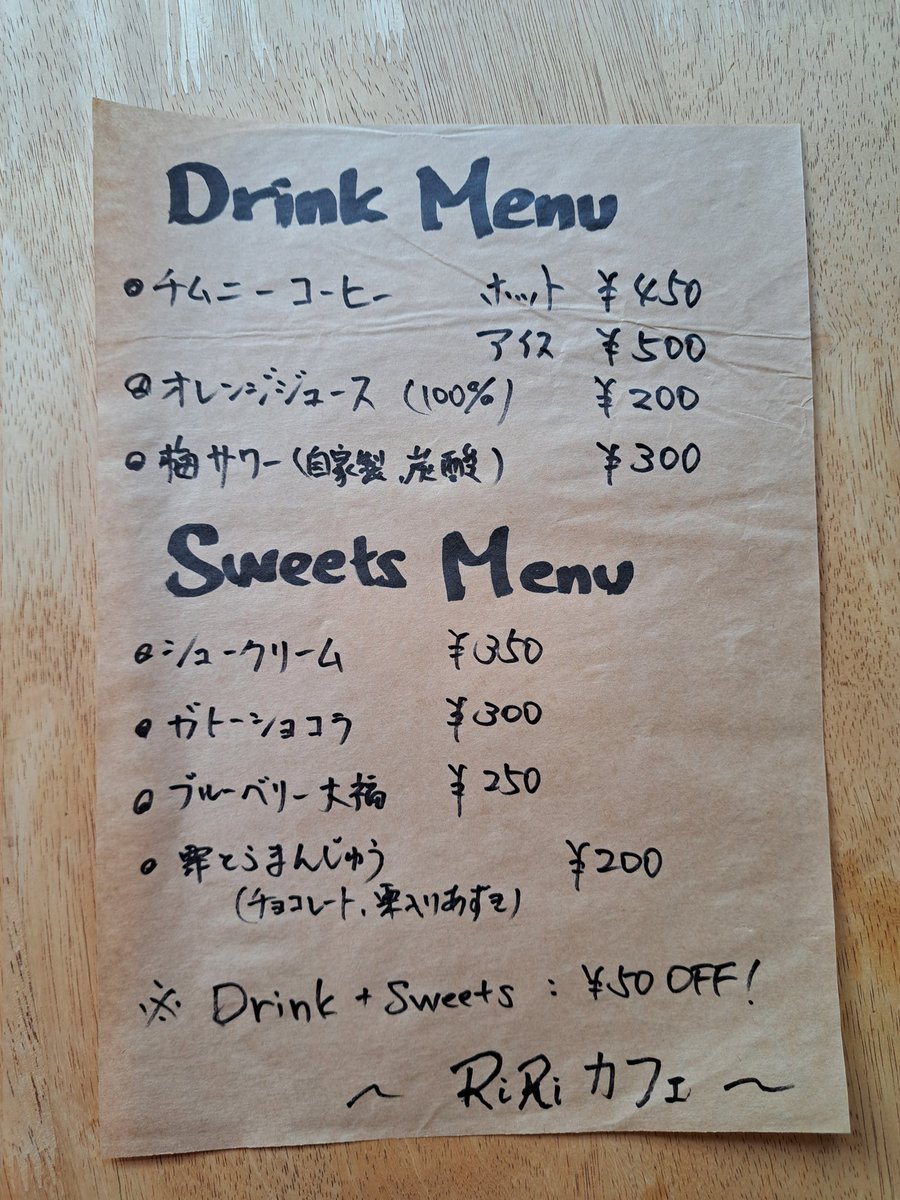 Drink Menu
• チムニーコーヒー ホット ¥450
アイス ¥500
• オレンジジュース (100%) ¥200
• 梅サワー(自家製、炭酸) ¥300
Sweets Menu
• シュークリーム ¥350
• ガトーショコラ ¥300
• ブルーベリー大福 ¥250
• とらまんじゅう ¥200
(チョコレート、栗入りあずき)
※ Drink + Sweets : ¥50 OFF!
〜 RiRi カフェ 〜